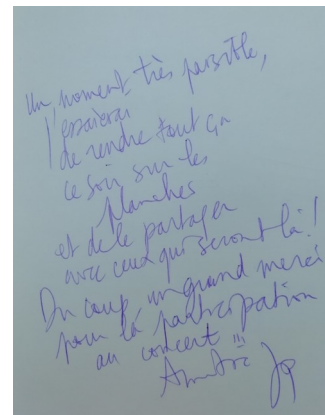 Un moment très paisible,
j'essaierai
de rendre tout ça
ce soir sur les
planches
et de le partager
avec ceux qui seront là !
Du coup un grand merci
pour la participation
au concert !!!